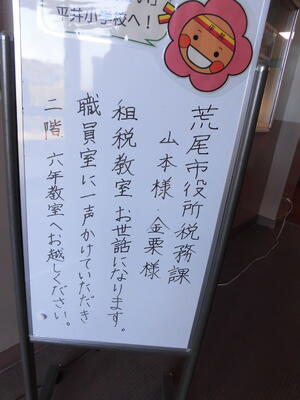 平井小学校へ！
荒尾市役所税務課
山本様・金栗様
租税教室 お世話になります。
職員室に一声かけていただき
二階 六年教室へお越しください。